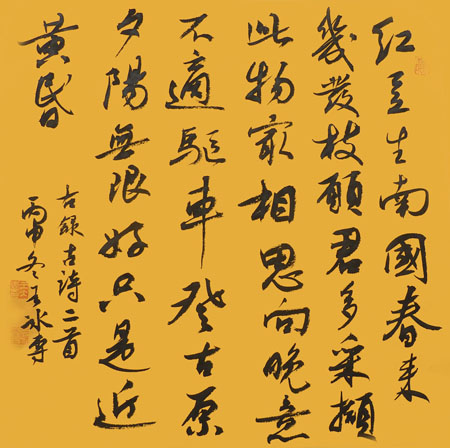 红豆生南國春来
幾發枝願君多采擷
此物最相思向晚意
不適驅車登古原
夕陽無限好只是近
黄昏
右録古詩二首
丙申冬